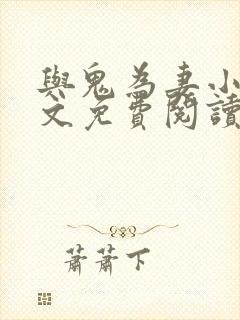 與鬼為妻小
文免費閱讀
蕭蕭下